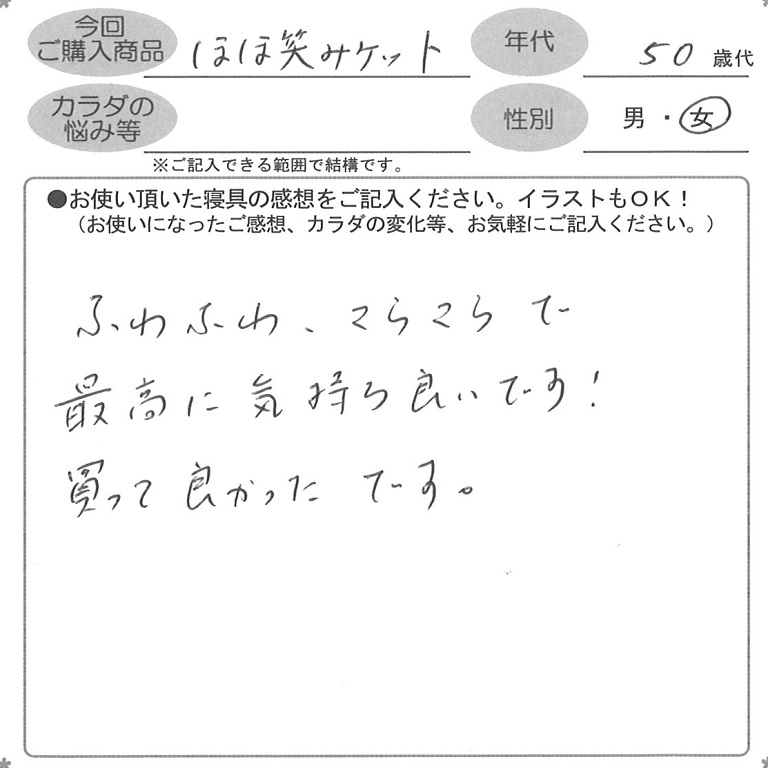 今回
ご購入商品 ほほ笑みケット 年代 50 歳代
カラダの
悩み等 性別 男・女
※ご記入できる範囲で結構です。
●お使い頂いた寝具の感想をご記入ください。イラストもOK！
（お使いになったご感想、カラダの変化等、お気軽にご記入ください。）
ふわふわ、さらさらで
最高に気持ち良いです！
買って良かったです。